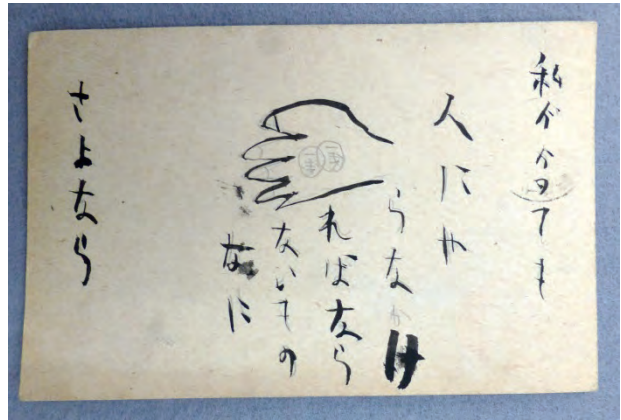 私がかっても
人にや
らなけ
ればなら
ないもの
なに
さよなら